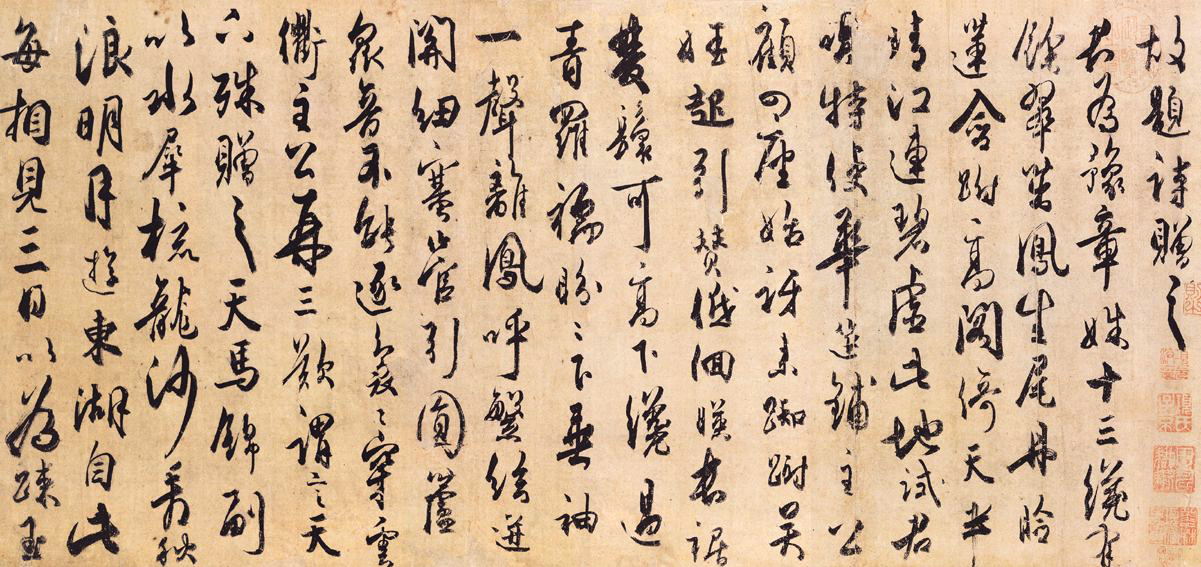 故題詩贈之
君為豫章姝十三纔有
餘翠茁鳳生尾丹臉
蓮含跗高閣倚天半
晴江連碧虛此地試君
唱特使華筵鋪主公
顧四座始訝來踟躕吳
娃起引贊低徊暎長裾
雙鬟可高下纔過
青羅襦盼〻下垂袖
一聲離鳳呼繁絃迸
關紐塞管引圓蘆
眾音不能逐裊〻穿雲
衢主公再三歎謂言天
下殊贈之天馬錦副
以水犀梳龍沙看秋
浪明月遊東湖自此
每相見三日以為踈玉